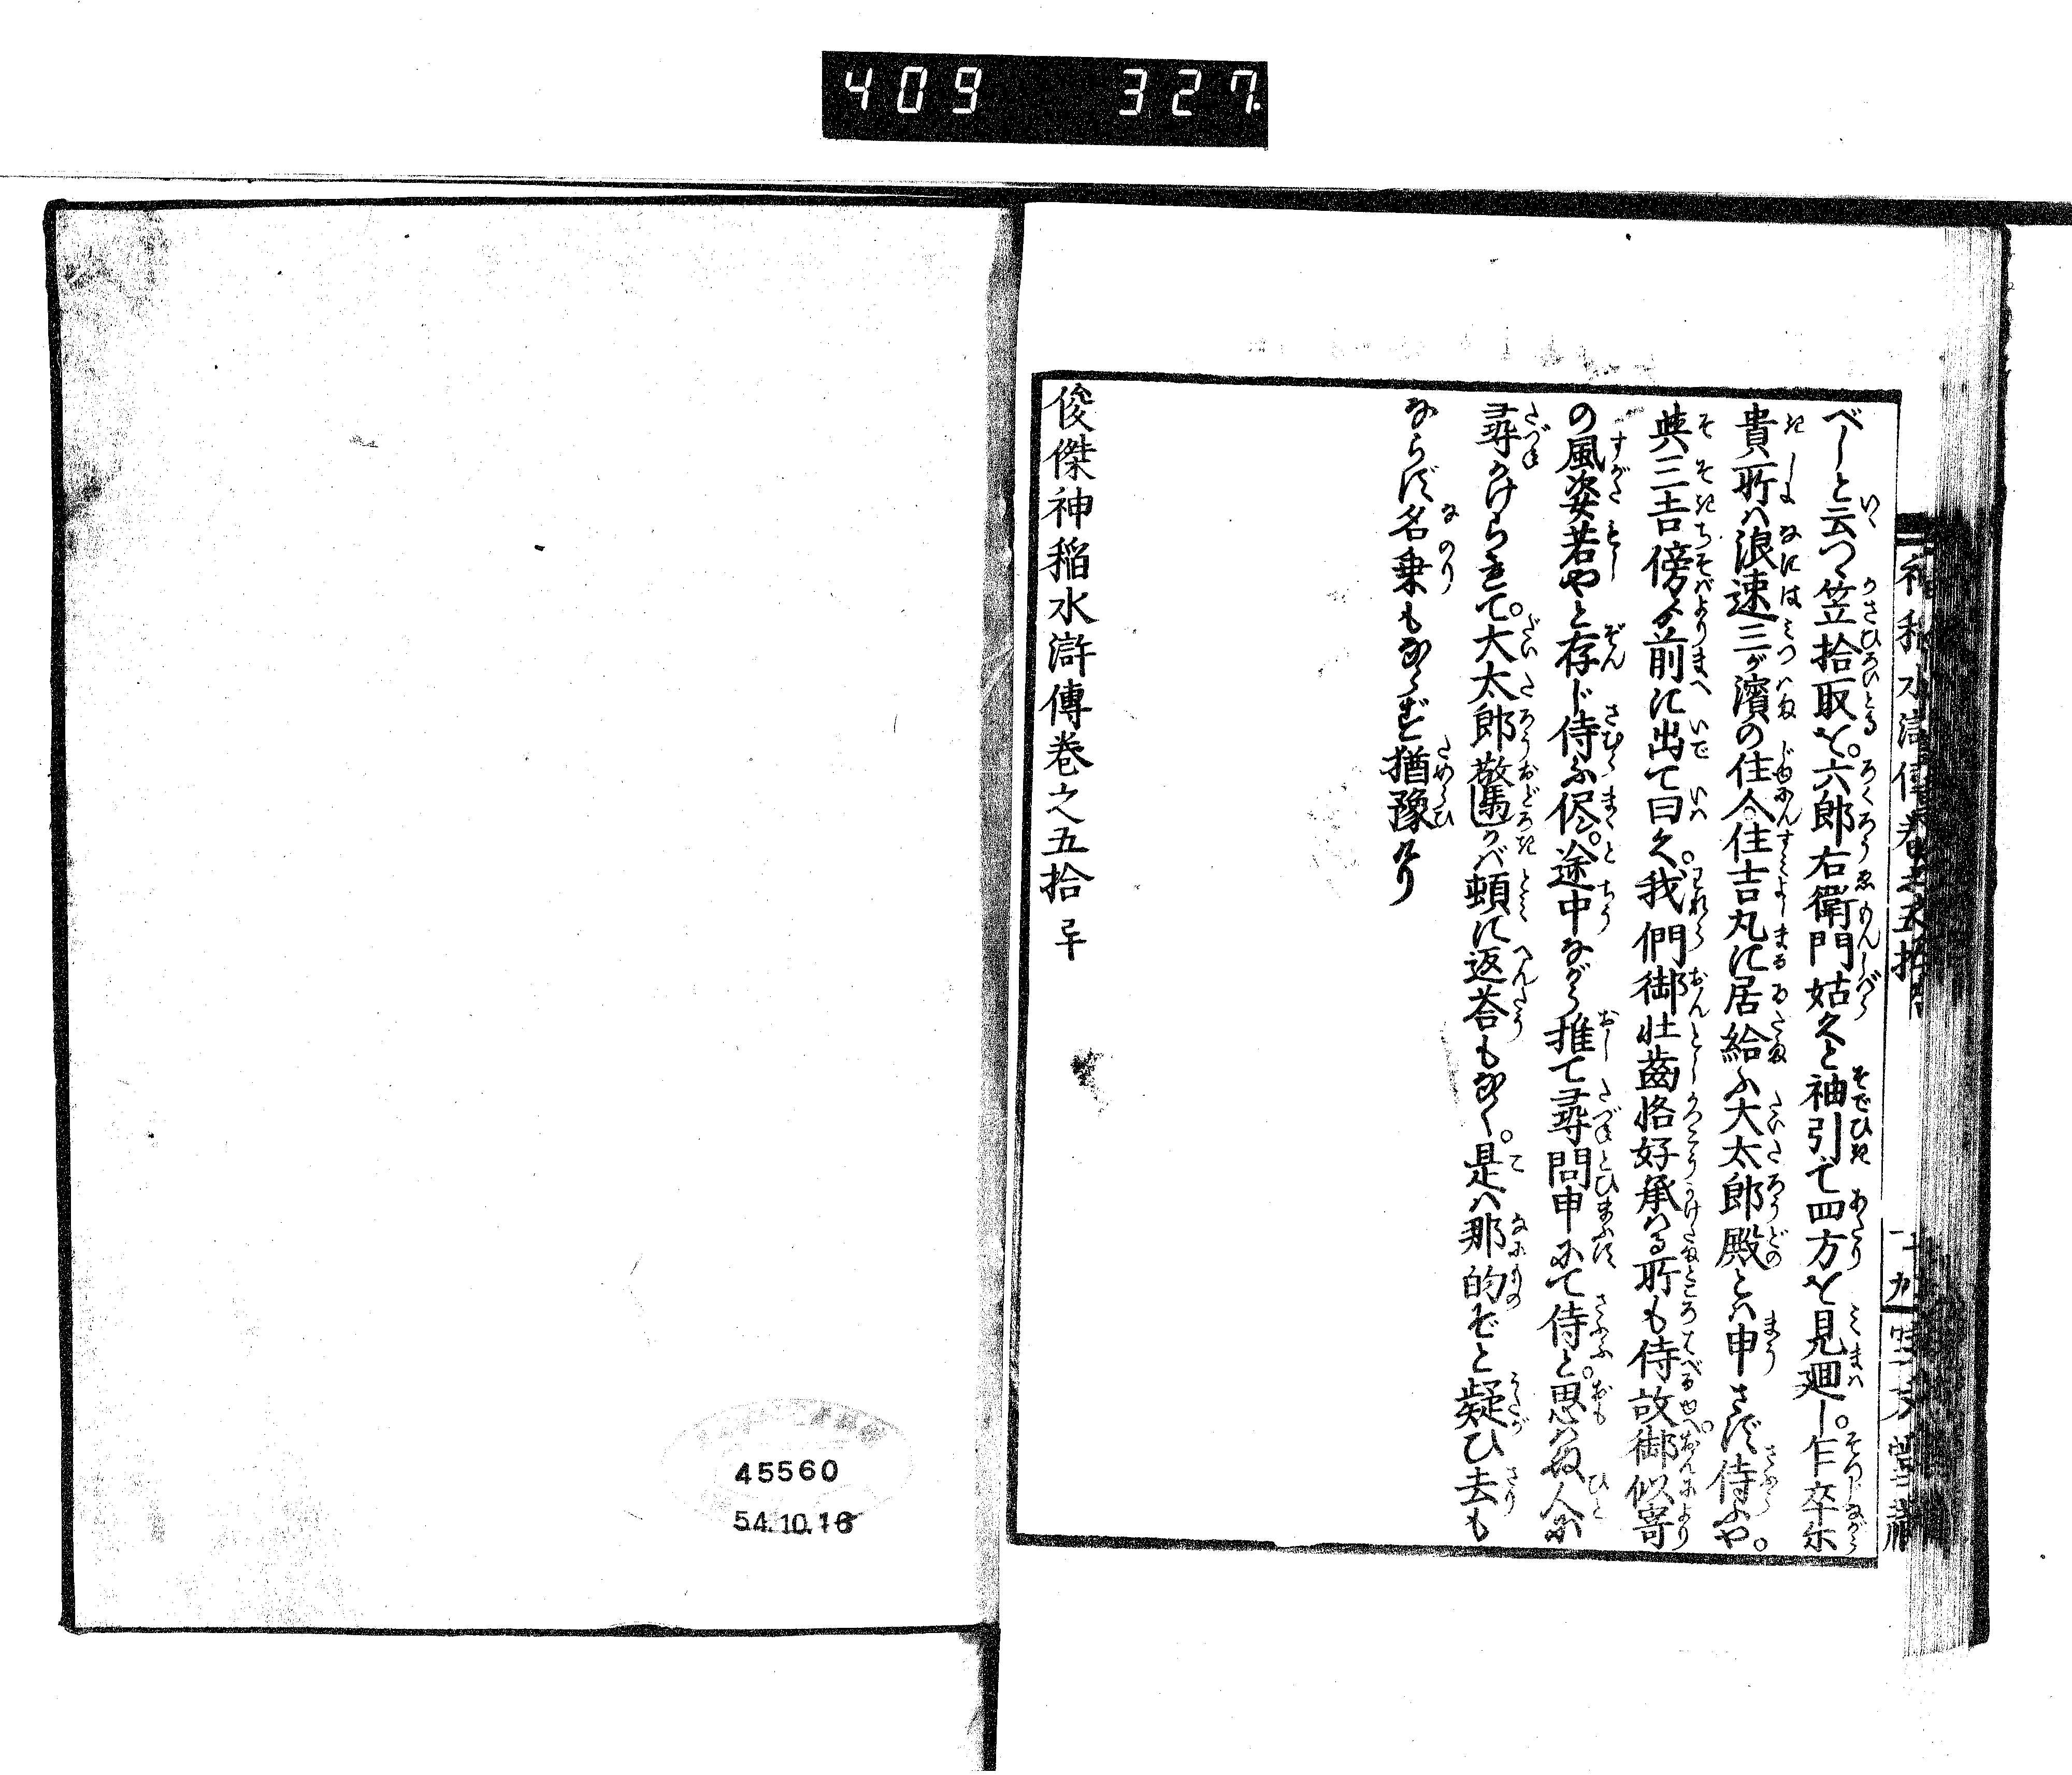 409 327
べしと云つゝ笠拾取を。六郎右衛門姑久と袖引て四方を見廻し。乍卒尓
貴所ハ浪速三が濱の住人住吉丸に居給ふ大太郎殿とハ申さずや。
其三吉傍より前に出て曰く。我們御壮齒恪好承はる所も侍故御似寄
の風姿若やと存じ侍ふ侭。途中ながら推て尋問申にて侍と。思はぬ人に
尋かけられて。大太郎驚かバ頓に返荅もなく。是ハ那的ぞと疑ひ去も
ならず名乗もならずと猶豫けり
俊傑神稲水滸傳巻之五拾
45560
54.10.16